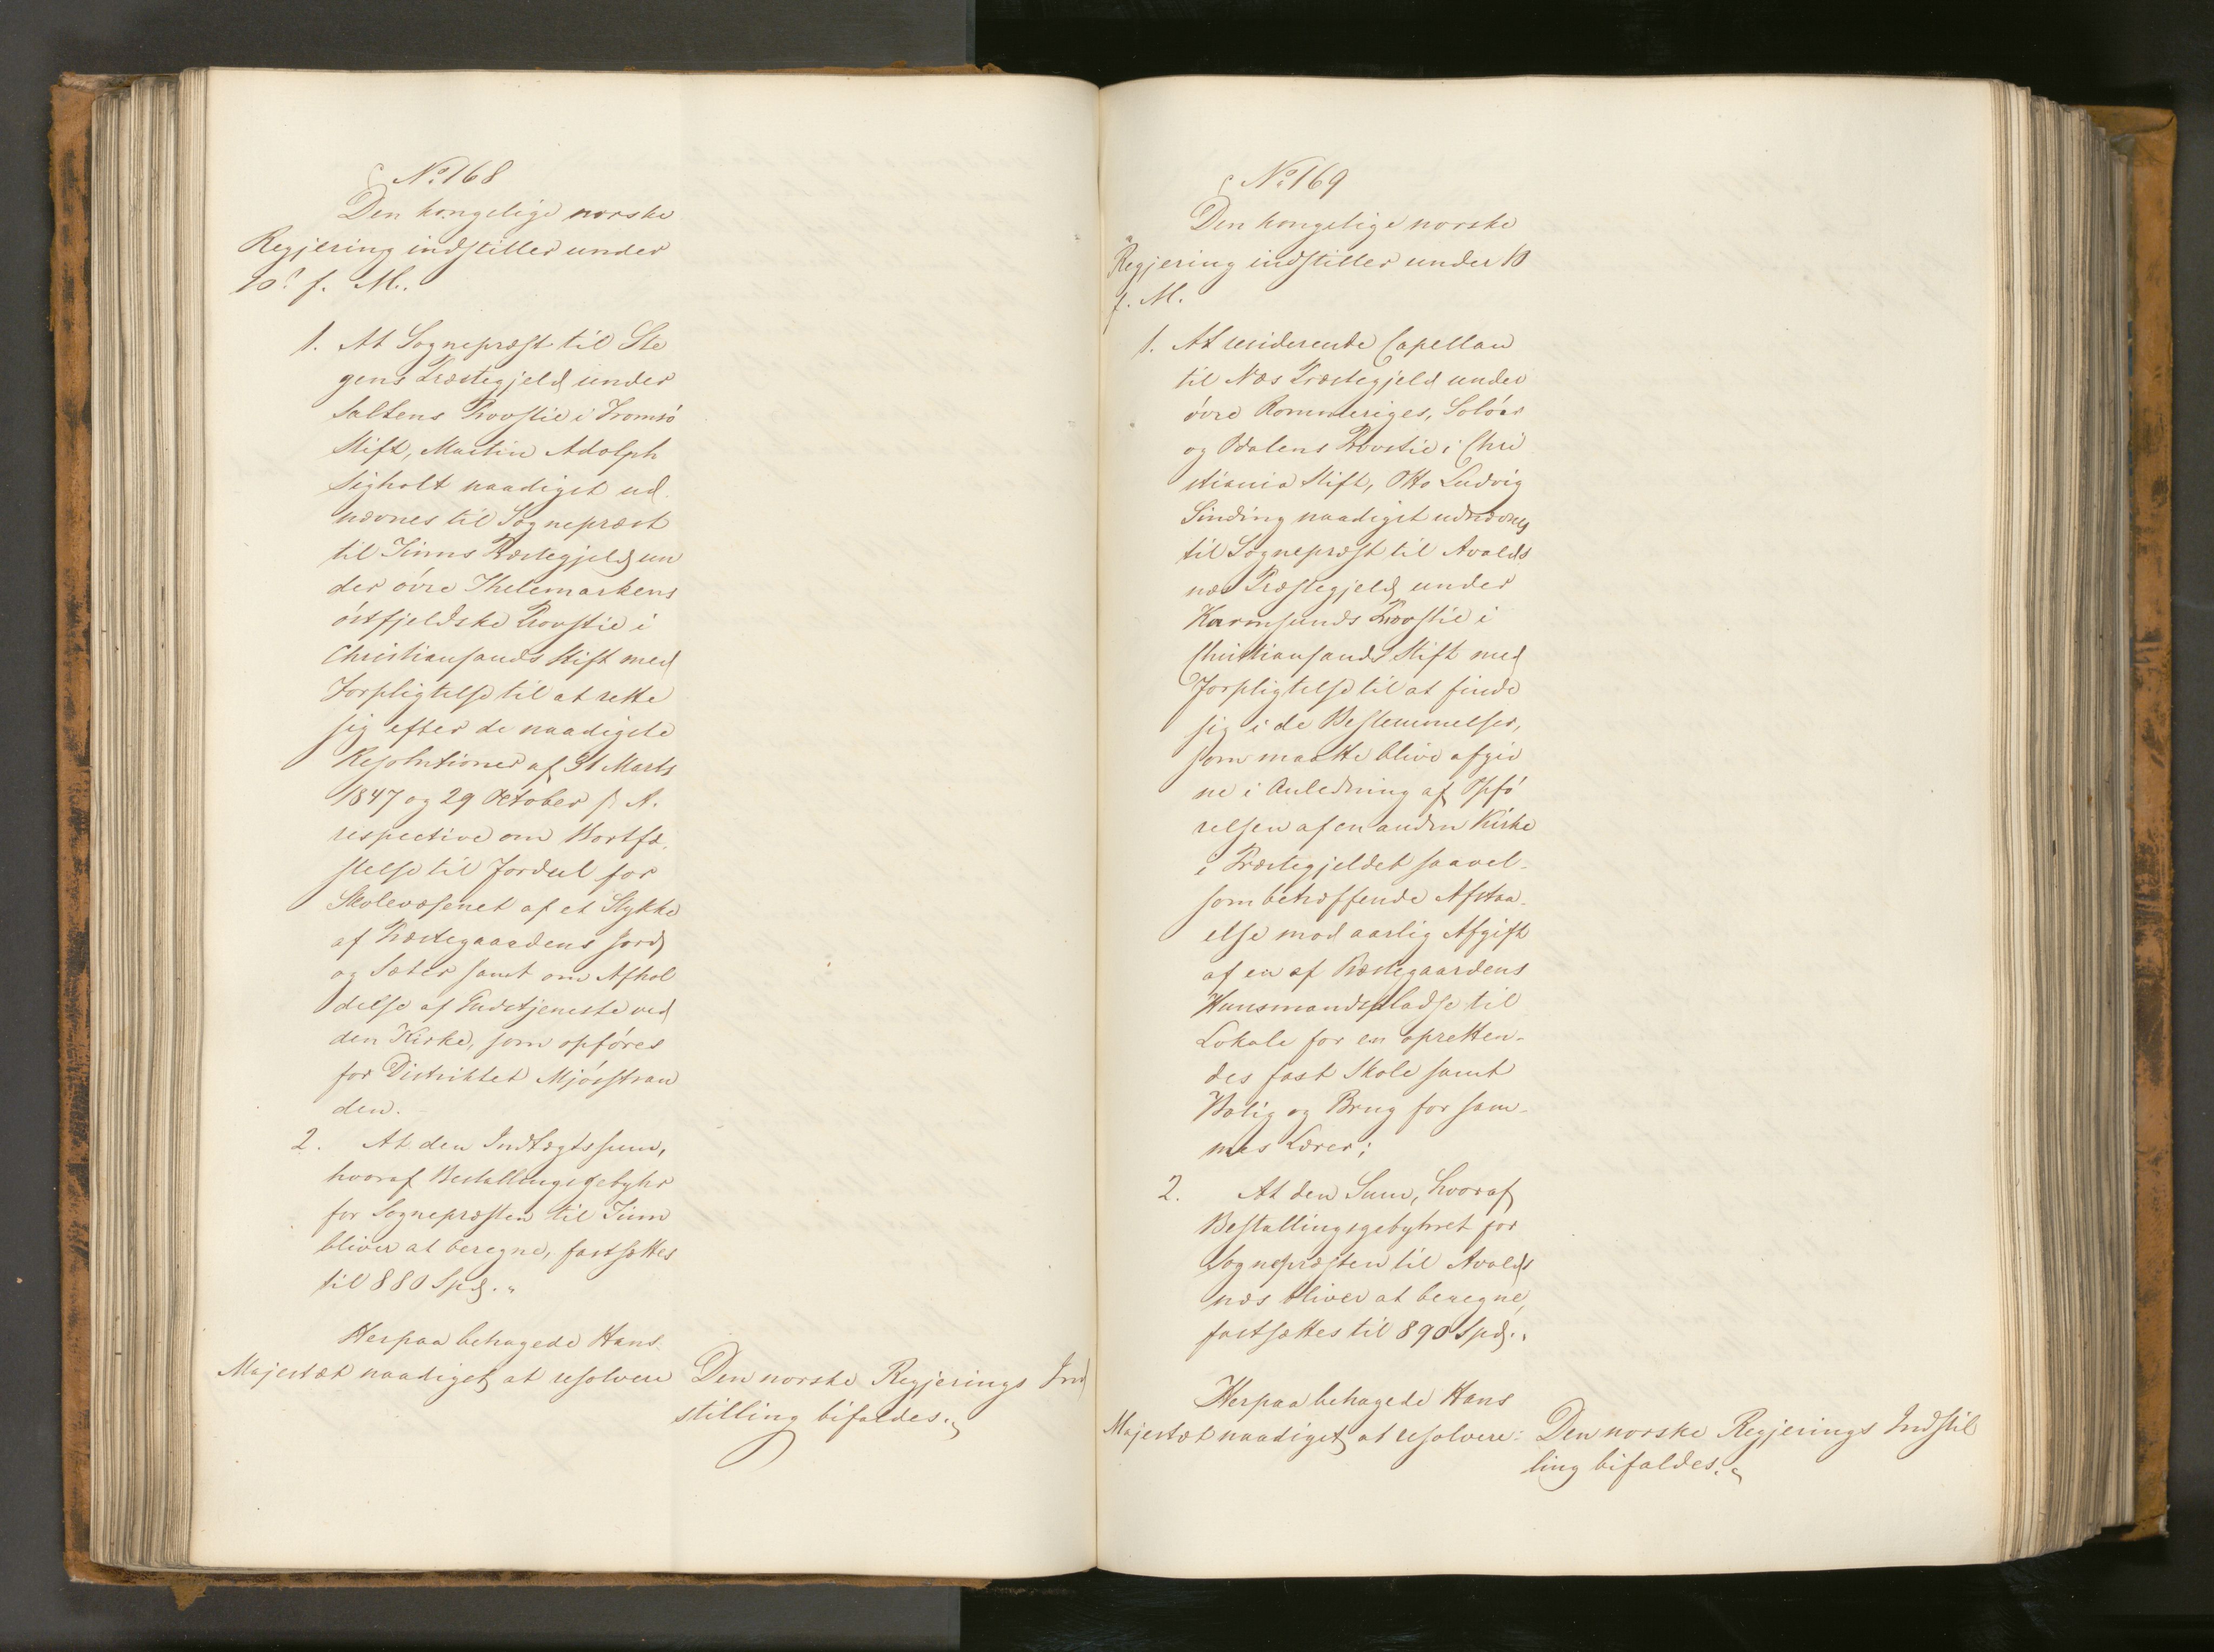 No. 168
Den kongelige norske
Regjering indstiller under
10. f. M.
1. At Sognepræst til Ste
gens Præstegjeld under
Saltens Provstie i Tromsö
Stift, Martin Adolph
Sigholt naadigst ud
nævnes til Sognepræst
til Tinns Præstegjeld un
der övre Thelemarkens
östfjeldske Provstie i
Christiansands Stift med
Forpligtelse til at rette
sig efter de naadigste
Resolutioner af 31 Marts
1847 og 29 October s. A.
respective om Bortfæ
stelse til Jordeel for
Skolevæsenet af et Stykke
af Præstegaardens Jord
og Sæter samt om Afhol
delse af Gudstjeneste ved
den Kirke, som opföres
for Distriktet Mjösstran
den.
2. At den Indtægtssum,
hvoraf Bestallingsgebyhr
for Sognepræsten til Tinn
bliver at beregne, fastsættes
til 880 Spd.
Herpaa behagede Hans
Majestæt naadigst at resolvere Den norske Regjerings Ind
stilling bifaldes.
No. 169
Den kongelige norske
Regjering indstiller under 10
f. M.
1. At residerende Capellan
til Næs Præstegjeld under
övre Rommeriges, Solöer
og Odalens Provstie i Chri
stiania Stift, Otto Ludvig
Sinding naadigst udnævnes
til Sognepræst til Avalds
næs Præstegjeld under
Karmsunds Provstie i
Christiansands Stift med
Forpligtelse til at finde
sig i de Bestemmelser,
som maatte blive afgiv
ne i Anledning af Opfö
relsen af en anden Kirke
i Præstegjeldet saavel
som betræffende Afstaa
else mod aarlig Afgift
af en af Præstegaardens
Huusmandspladse til
Lokale for en opretten
des fast Skole samt
Bolig og Brug for sam
mes Lærer;
2. At den Sum, hvoraf
Bestallingsgebyhret for
Sognepræsten til Avalds
næs bliver at beregne,
fastsættes til 890 Spd.
Herpaa behagede Hans
Majestæt naadigst at resolvere: Den norske Regjerings Indstil
ling bifaldes.